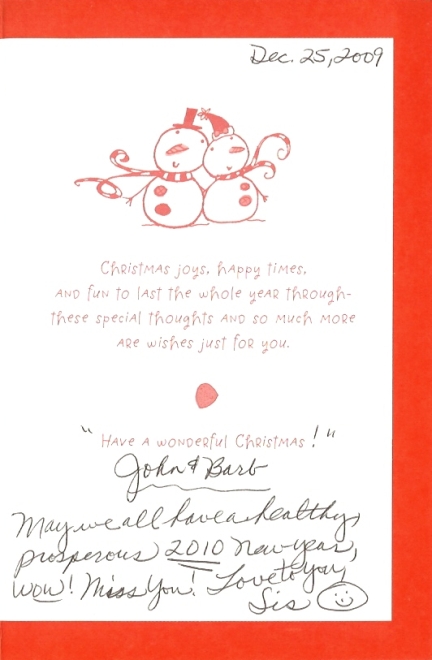 Dec. 25, 2009
Christmas joys, happy times,
and fun to last the whole year through-
these special thoughts and so much more
are wishes just for you.
"Have a wonderful Christmas!"
John & Barb
May we all have a healthy,
prosperous 2010 New year,
wow! Miss You! Love to you,
Sis